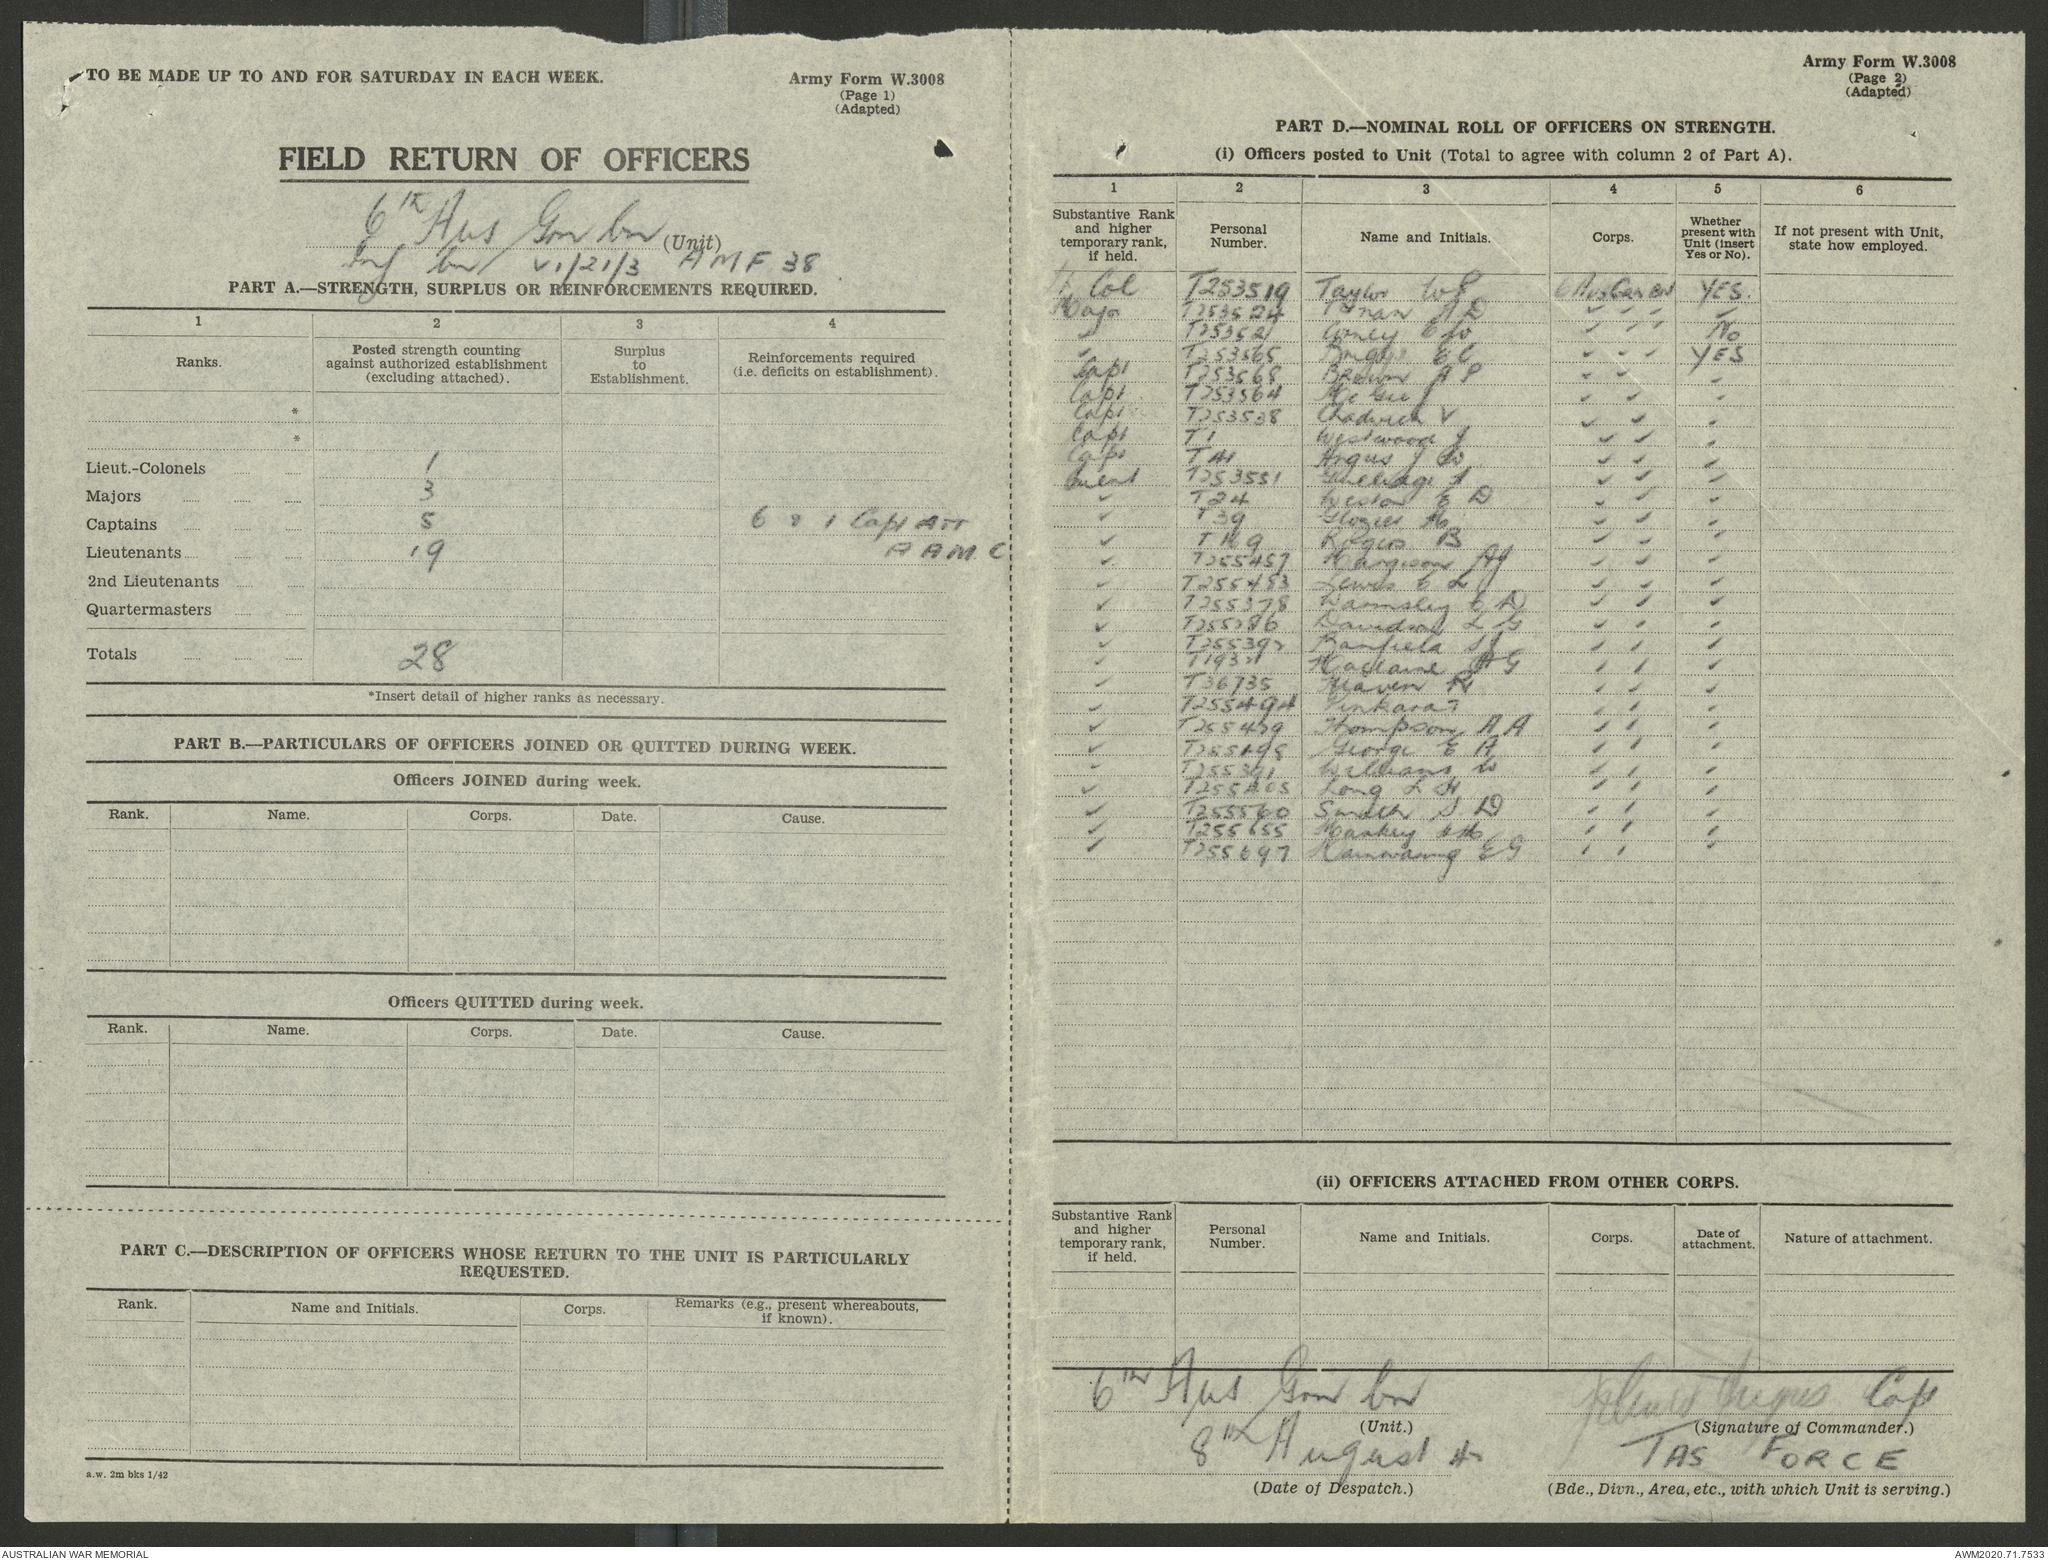 TO BE MADE UP TO AND FOR SATURDAY IN EACH WEEK.
Army Form W.3008
(Page 1)
(Adapted)
FIELD RETURN OF OFFICERS
6th Aus Gar bn (Unit)
Inf bn VI/21/3 AMF 38
PART A.—STRENGTH, SURPLUS OR REINFORCEMENTS REQUIRED.
1 2 3 4
Ranks. Posted strength counting against authorized establishment (excluding attached). Surplus to Establishment. Reinforcements required (i.e. deficits on establishment).
*
*
Lieut.-Colonels 1
Majors 3
Captains 5 6 & 1 Capt Att
Lieutenants 19 A A M C
2nd Lieutenants
Quartermasters
Totals 28
*Insert detail of higher ranks as necessary.
PART B.—PARTICULARS OF OFFICERS JOINED OR QUITTED DURING WEEK.
Officers JOINED during week.
Rank. Name. Corps. Date. Cause.
Officers QUITTED during week.
Rank. Name. Corps. Date. Cause.
PART C.—DESCRIPTION OF OFFICERS WHOSE RETURN TO THE UNIT IS PARTICULARLY
REQUESTED.
Rank. Name and Initials. Corps. Remarks (e.g., present whereabouts, if known).
a.w. 2m bks 1/42
Army Form W.3008
(Page 2)
(Adapted)
PART D.—NOMINAL ROLL OF OFFICERS ON STRENGTH.
(i) Officers posted to Unit (Total to agree with column 2 of Part A).
1 2 3 4 5 6
Substantive Rank and higher temporary rank, if held. Personal Number. Name and Initials. Corps. Whether present with Unit (insert Yes or No). If not present with Unit, state how employed.
Col T253519 Taylor W P 6 Aus Gar Bn YES.
Major T253524 A D ✓ ✓ ✓ ✓
✓ T253521 ✓ ✓ ✓ No
✓ T253565 Briggs E C ✓ ✓ ✓ YES
Capt T253568 Brown A P ✓ ✓ ✓
Capt T253564 McGee J ✓ ✓ ✓
Capt T253538 Chadwick V ✓ ✓ ✓
Capt T1 Westwood J ✓ ✓ ✓
Capt T41 Argus J W ✓ ✓ ✓
Lieut T253551 ✓ ✓ ✓
✓ T24 Weston E D ✓ ✓ ✓
✓ T39 ✓ ✓ ✓
✓ Rogers B ✓ ✓ ✓
✓ T255457 Hargison A J ✓ ✓ ✓
✓ T255453 Lewis C L ✓ ✓ ✓
✓ T255378 Walmsley C D ✓ ✓ ✓
✓ T255286 Davidson L G ✓ ✓ ✓
✓ T255392 Banfield S J ✓ ✓ ✓
✓ A G ✓ ✓ ✓
✓ T36735 ✓ ✓ ✓
✓ T255494 ✓ ✓ ✓
✓ T255479 Thompson A A ✓ ✓ ✓
✓ T255498 George E A ✓ ✓ ✓
✓ T255391 Williams W ✓ ✓ ✓
✓ T255405 Long L H ✓ ✓ ✓
✓ T255560 Smith S D ✓ ✓ ✓
✓ T255655 ✓ ✓ ✓
✓ T255697 E G ✓ ✓ ✓
(ii) OFFICERS ATTACHED FROM OTHER CORPS.
Substantive Rank and higher temporary rank, if held. Personal Number. Name and Initials. Corps. Date of attachment. Nature of attachment.
6th Aus Gar bn Argus Cap
(Unit.) (Signature of Commander.)
8th August TAS FORCE
(Date of Despatch.) (Bde., Divn., Area, etc., with which Unit is serving.)
AUSTRALIAN WAR MEMORIAL
AWM2020.71.7533